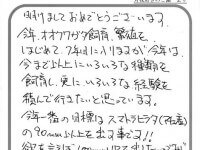 明けましておめでとうございます。
今年、オオクワガタ飼育、繁殖を
はじめて、7年目に入りますが今年は、
今まで以上にいろいろな種類を
飼育し、更に、いろいろな経験を
積んで行きたいと思っています。
今年一番の目標はスマトラヒラタ(産)
の90mm以上を出す事です!!
欲を言えば100mm